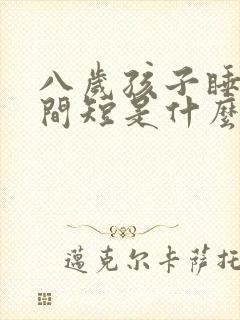 八歲孩子睡
間短是什麼
邁克尔卡萨托